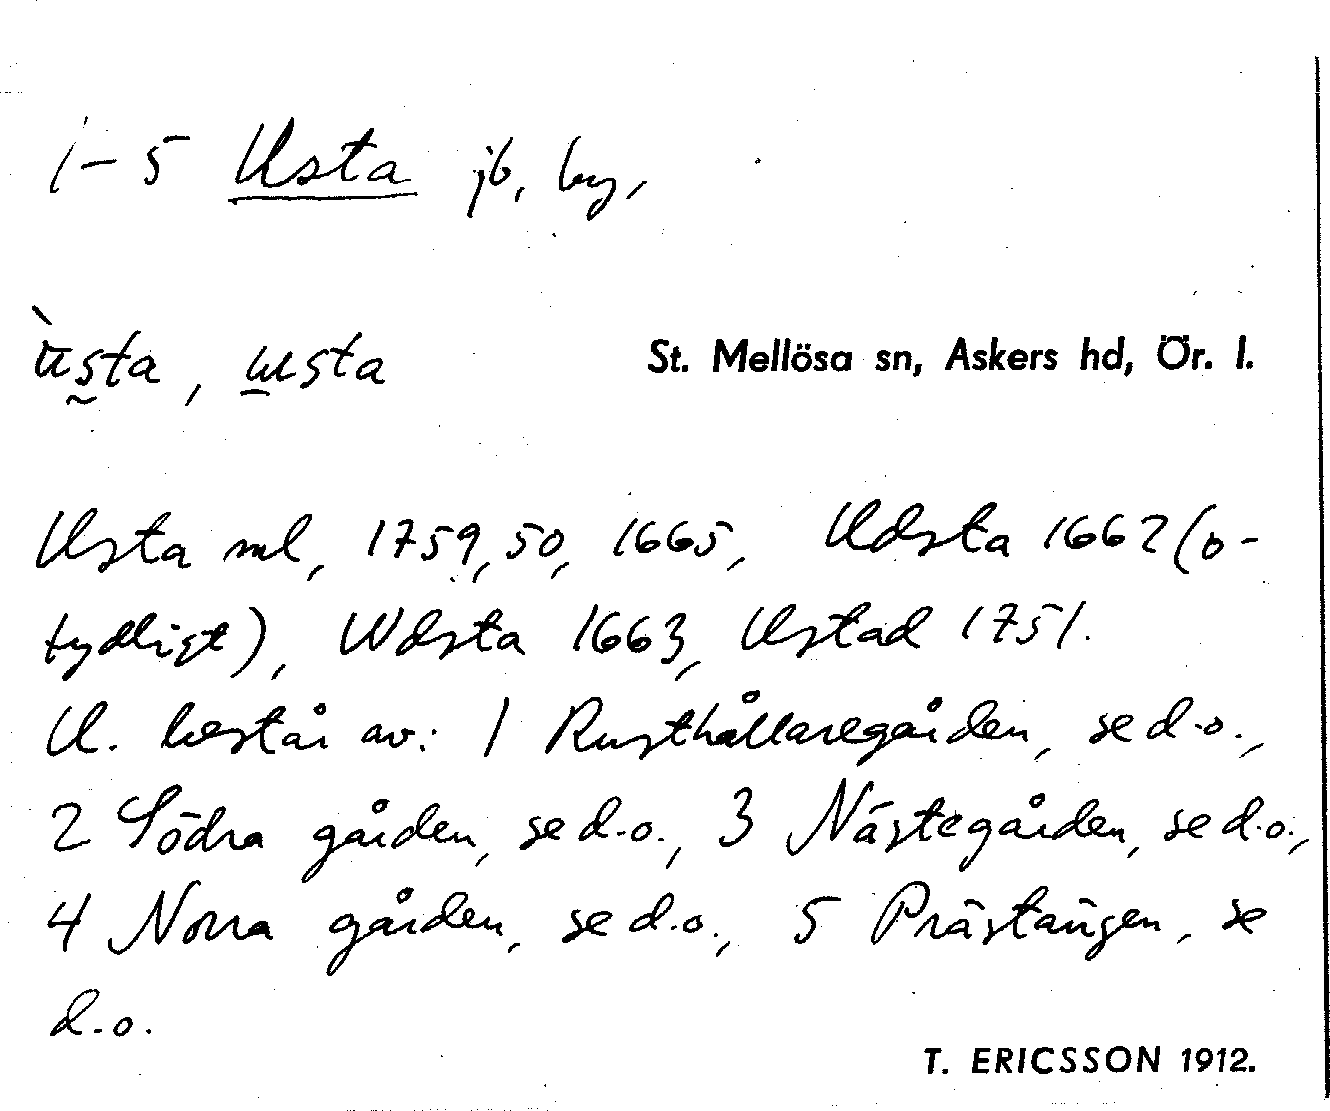 1-5 Usta jb, by,
ùsta, usta St. Mellösa sn, Askers hd, Ör. l.
Usta ml, 1759, 50, 1665, Udsta 1662 (o-
tydligt), Wdsta 1663, Ustad 1751.
U. består av: 1 Rusthållaregården, se d.o.,
2 Södra gården, se d.o., 3 Nästegården, se d.o.,
4 Norra gården, se d.o., 5 Prästängen, se
d.o.
T. ERICSSON 1912.